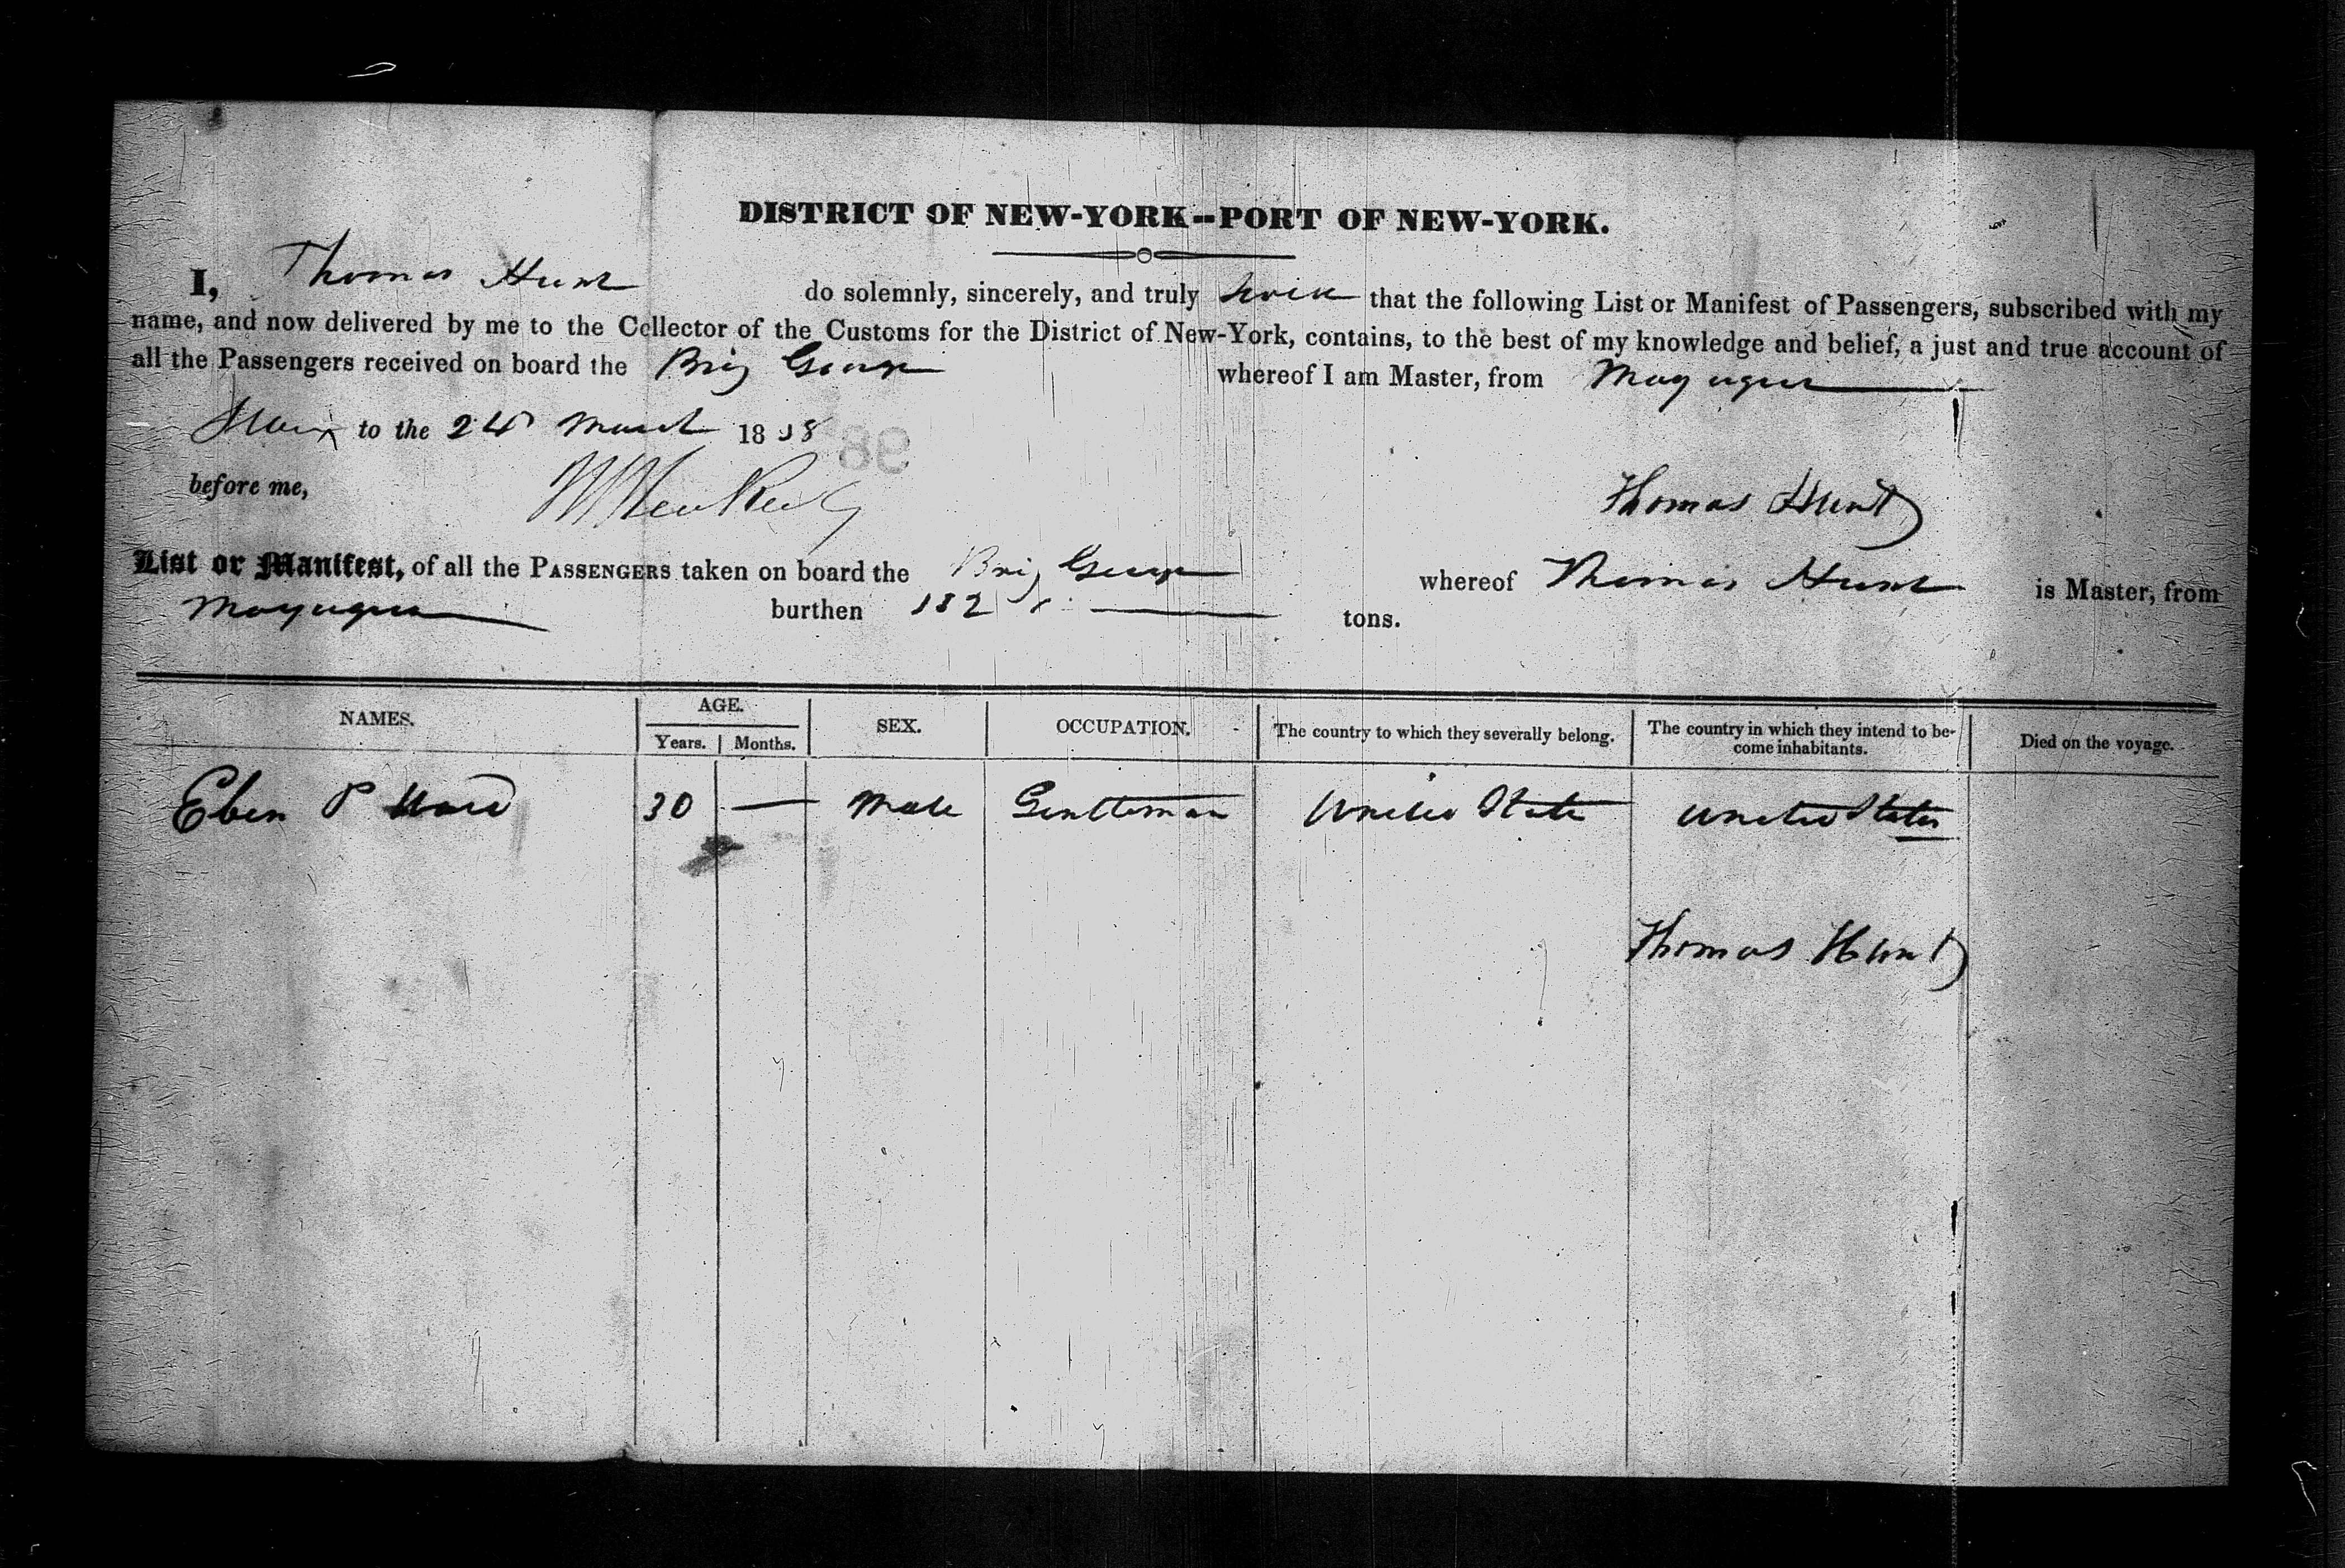 DISTRICT OF NEW-YORK--PORT OF NEW-YORK.
I, Thomas Hunt do solemnly, sincerely, and truly that the following List or Manifest of Passengers, subscribed with my
name, and now delivered by me to the Collector of the Customs for the District of New-York, contains, to the best of my knowledge and belief, a just and true account of
all the Passengers received on board the Brig George whereof I am Master, from Mayaguez
to the 24 March 1838
98
before me,
Thomas Hunt
List or Manifest, of all the PASSENGERS taken on board the Brig George whereof Thomas Hunt is Master, from
Mayaguez burthen 182 tons.
NAMES. AGE. Years. Months. SEX. OCCUPATION. The country to which they severally belong. The country in which they intend to be-
come inhabitants. Died on the voyage.
Eben P Ward 30 — Male Gentleman United State United States
Thomas Hunt